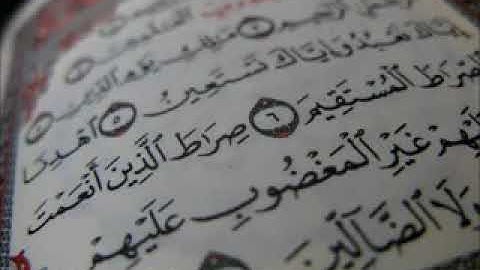 الرَّحِيمِ
مَٰلِكِ يَوْمِ الدِّينِ
إِيَّاكَ نَعْبُدُ وَإِيَّاكَ نَسْتَعِينُ ٥ اهْدِنَا
الصِّرَاطَ الْمُسْتَقِيمَ ٦ صِرَاطَ الَّذِينَ أَنْعَمْتَ
عَلَيْهِمْ غَيْرِ الْمَغْضُوبِ عَلَيْهِمْ
وَلَا الضَّالِّينَ